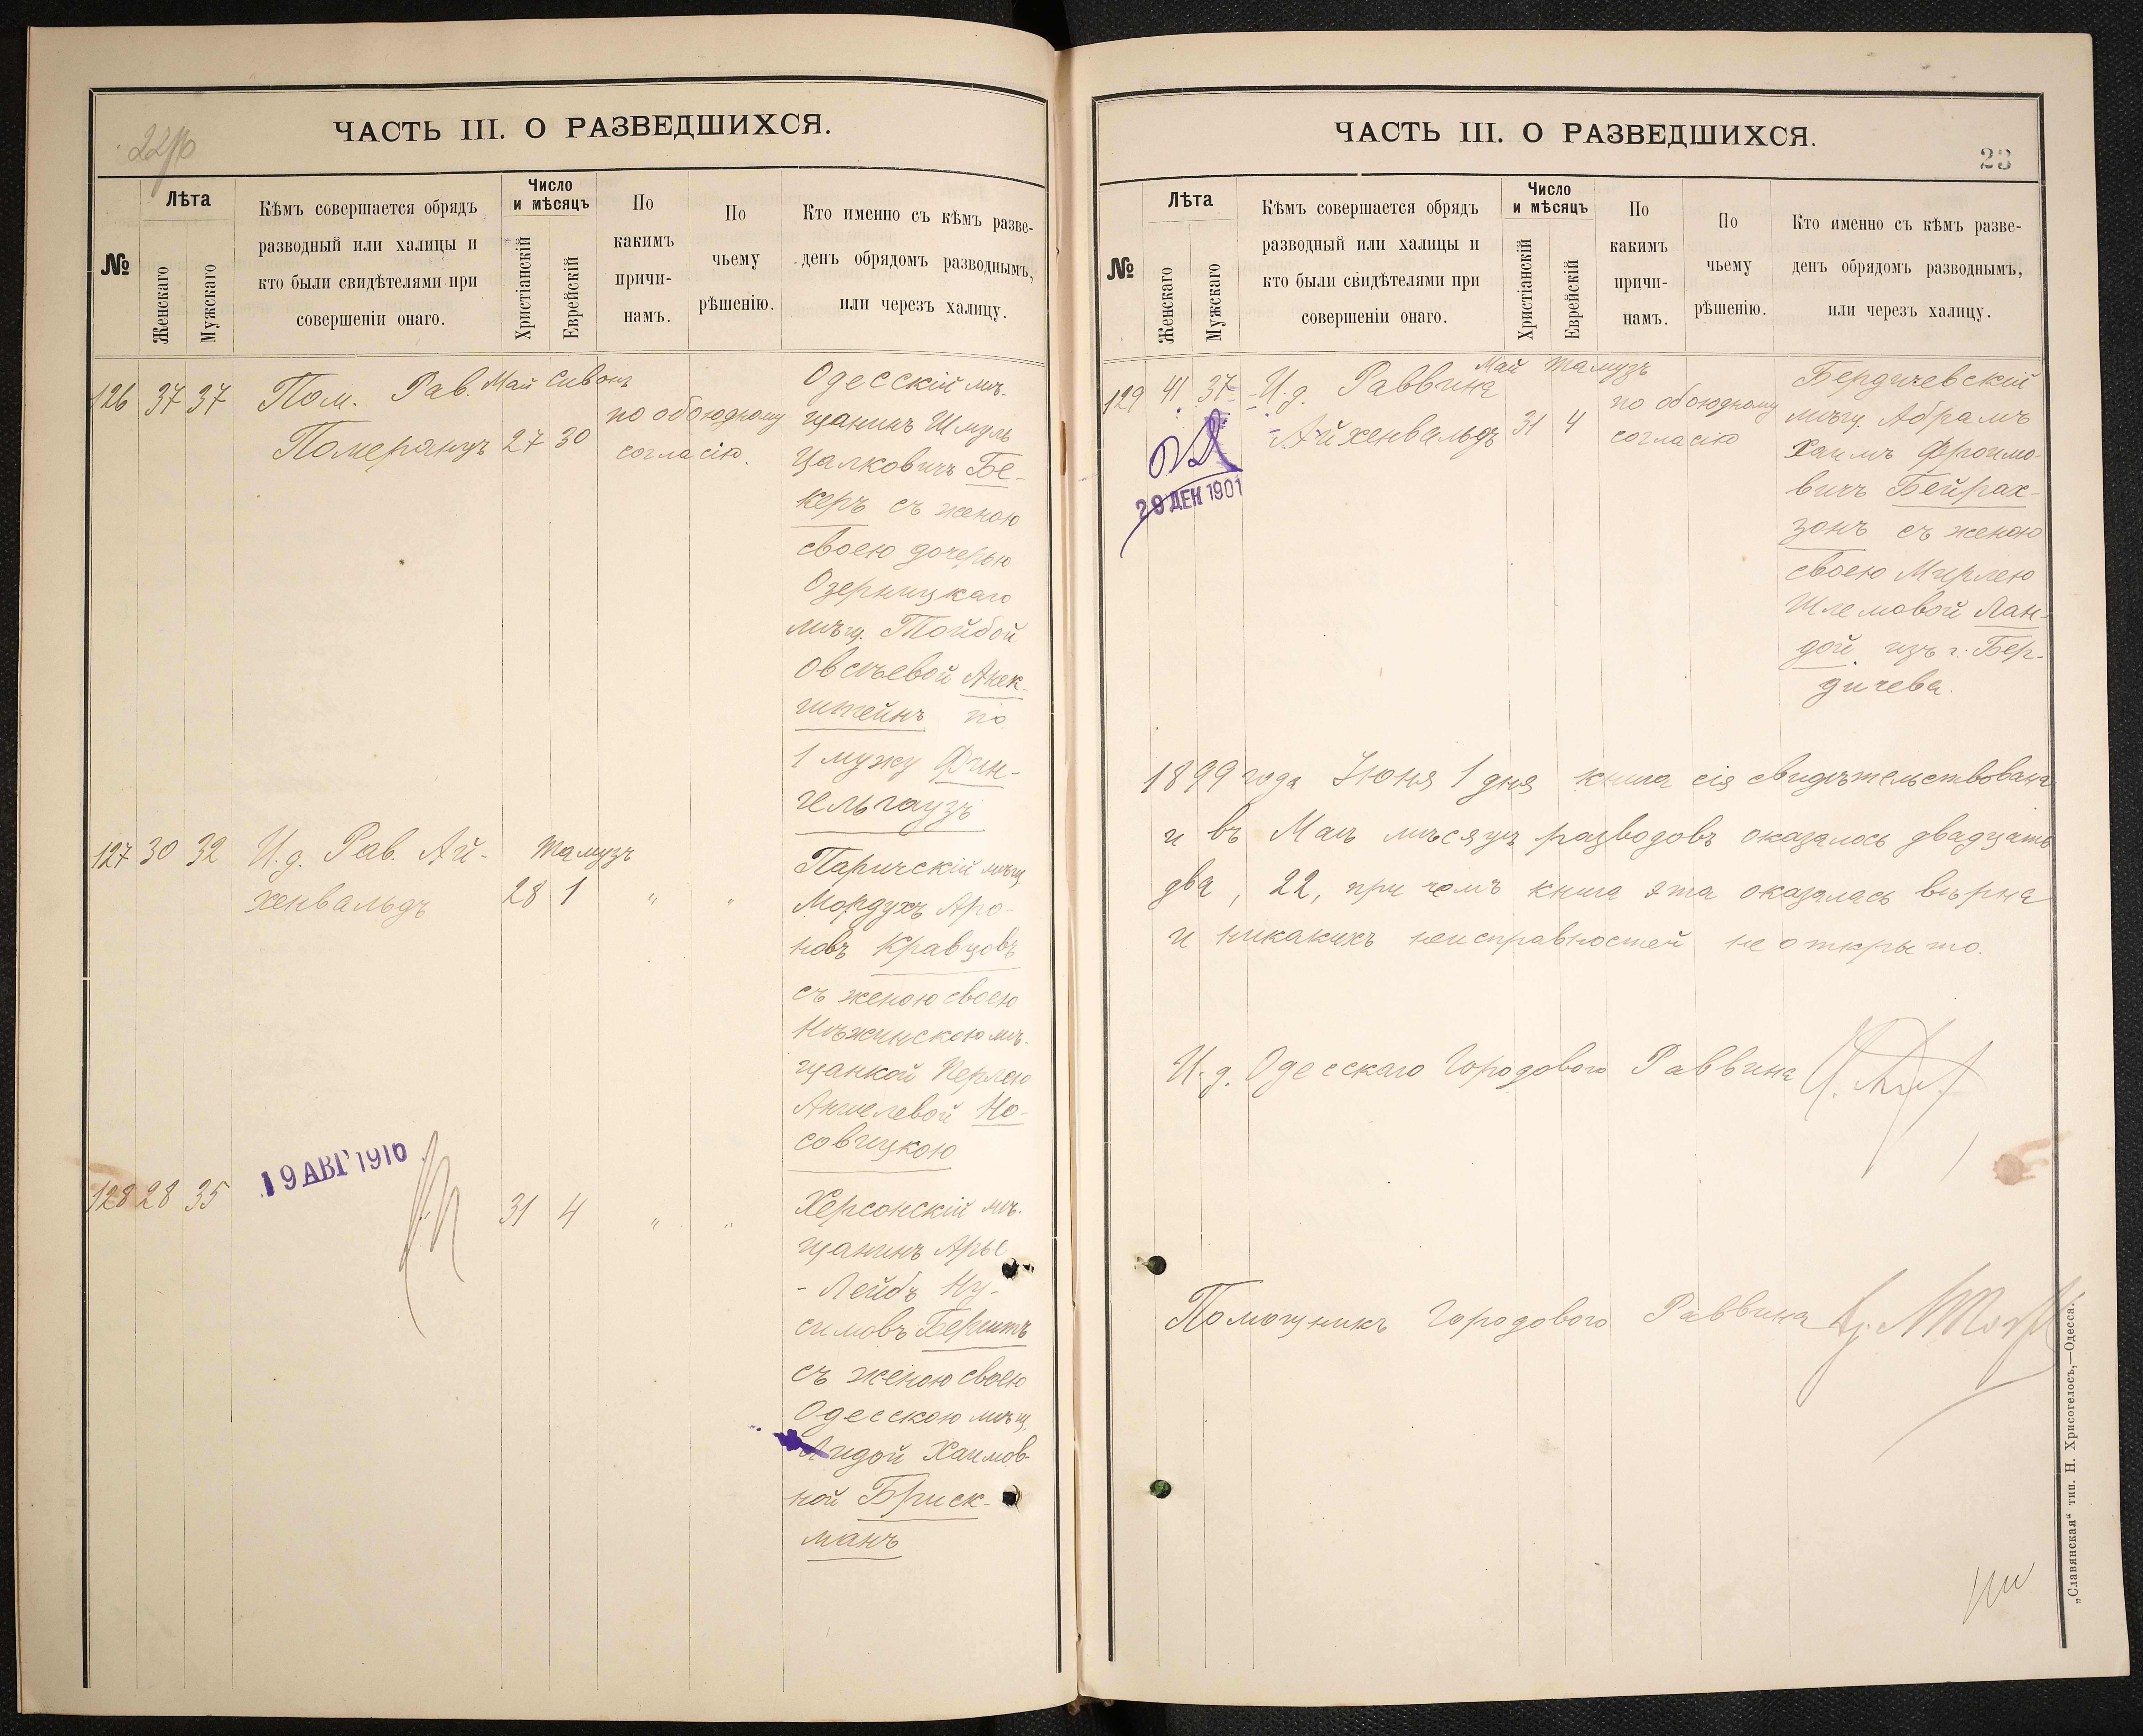 22/10
ЧАСТЬ III. О РАЗВЕДШИХСЯ.
№
Лѣта
Женскаго
Мужскаго
Кѣмъ совершается обрядъ
разводный или халицы и
кто были свидѣтелями при
совершеніи онаго.
Число
и мѣсяцъ
Христіанскій
Еврейскій
По
какимъ
причи-
намъ.
По
чьему
рѣшенію.
Кто именно съ кѣмъ разве-
денъ обрядомъ разводнымъ,
или черезъ халицу.
126 37 37 Пом. Рав. Май Сивонъ
Померанцъ 27 30
по обоюдному
согласію.
Одесскій мѣ-
щанинъ Шмуль
Цалковичъ Бе-
керъ съ женою
своею дочерью
Озерницкаго
мѣщ. Тойбой
Овсѣевой Анек-
штейнъ по
1 мужу Фин-
гельгаузъ
127 30 32 И.д. Рав. Ай-
хенвальдъ
Тамузъ
28 1 " "
Паричскій мѣщ.
Мордухъ Аро-
новъ Кравцовъ
съ женою своею
Нѣжинскою мѣ-
щанкой Перлею
Аншелевой Но-
совицкою
19 АВГ 1910
128 28 35
31 4 " "
Херсонскій мѣ-
щанинъ Арье
-Лейбъ Ну-
симовъ Берштъ
съ женою своею
Одесскою мѣщ.
Лидой Хаимов-
ной Бриск-
манъ
ЧАСТЬ III. О РАЗВЕДШИХСЯ.
23
№
Лѣта
Женскаго
Мужскаго
Кѣмъ совершается обрядъ
разводный или халицы и
кто были свидѣтелями при
совершеніи онаго.
Число
и мѣсяцъ
Христіанскій
Еврейскій
По
какимъ
причи-
намъ.
По
чьему
рѣшенію.
Кто именно съ кѣмъ разве-
денъ обрядомъ разводнымъ,
или черезъ халицу.
129 41 37 И.д. Раввина
Айхенвальдъ
Май Тамузъ
31 4
по обоюдному
согласію
29 ДЕК 1901
Бердичевскій
мѣщ. Абрамъ
Хаимъ Фроимо-
вичъ Бейрах-
зонъ съ женою
своею Мирлею
Шлемовой Лан-
дой изъ г. Бер-
дичева.
1899 года Іюня 1 дня книга сія свидѣтельствована
и въ Маѣ мѣсяцѣ разводовъ оказалось двадцать
два, 22, при чемъ книга эта оказалась вѣрна
и никакихъ неисправностей не открыто.
И.д. Одесскаго Городового Раввина
Помощникъ Городового Раввина
„Славянская“ тип. Н. Хрисогелосъ,—Одесса.